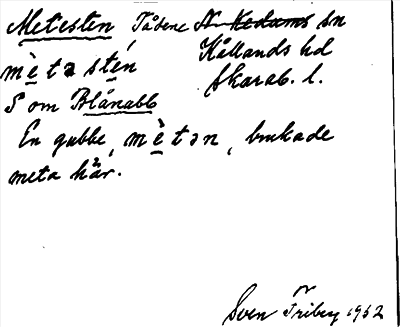 Metesten Tåbene N. Kedums sn
mètəstén Kållands hd
Skarab. l.
S om Blånabb
En gubbe, mètən, brukade
meta här.
Sven Friberg 1952